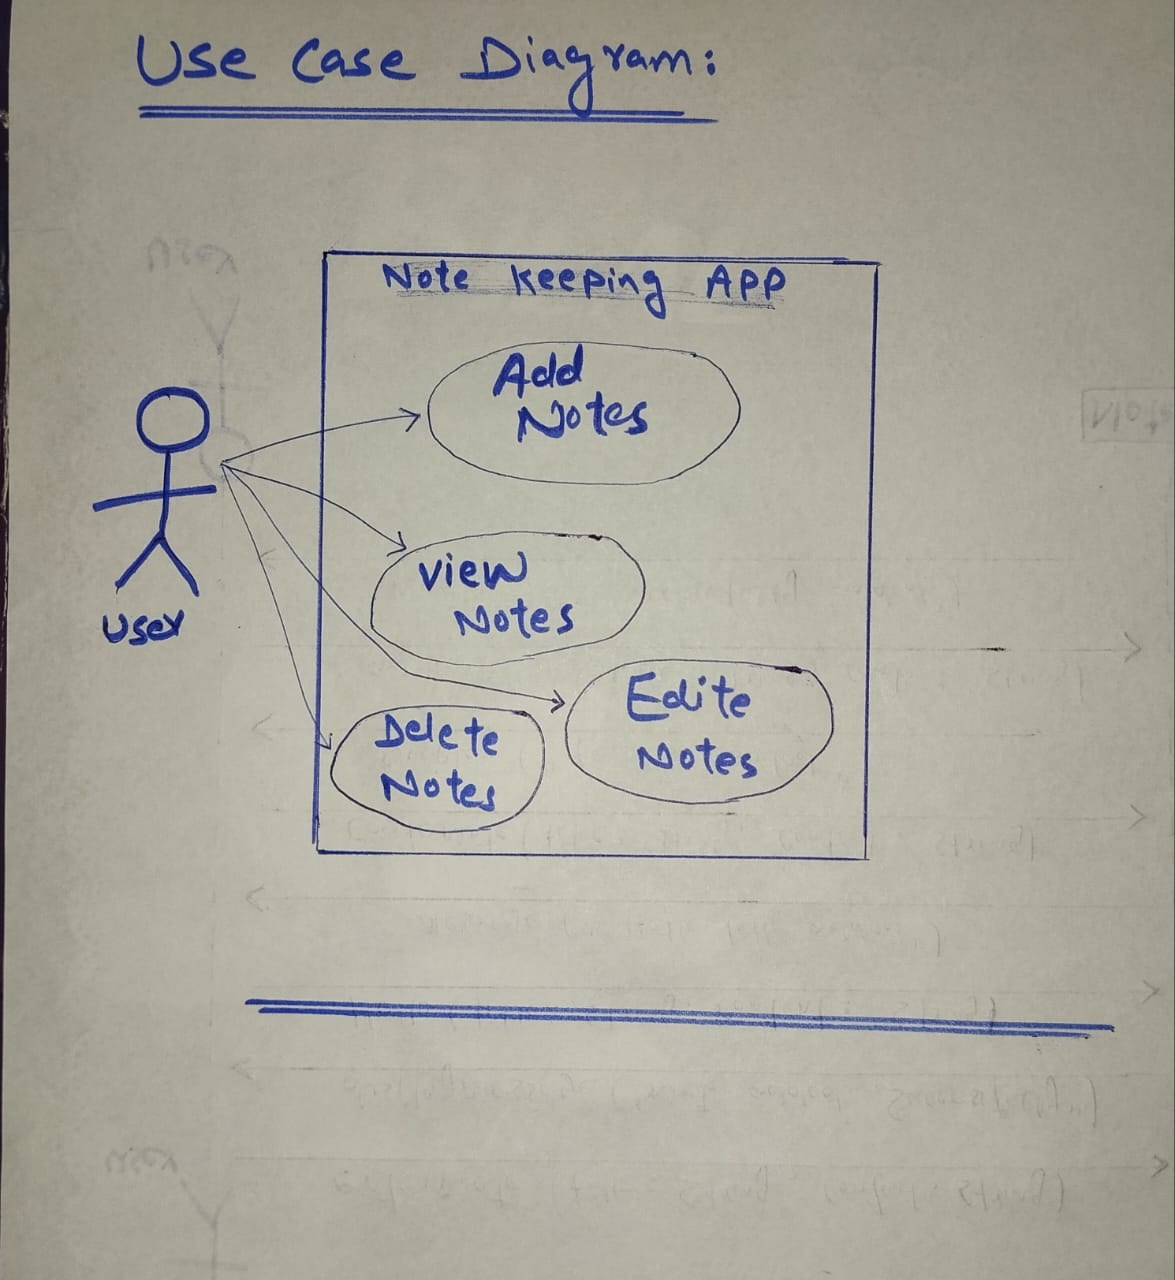 Use Case Diagram:
Note Keeping App
Add
Notes
View
Notes
User
Edite
Notes
Delete
Notes